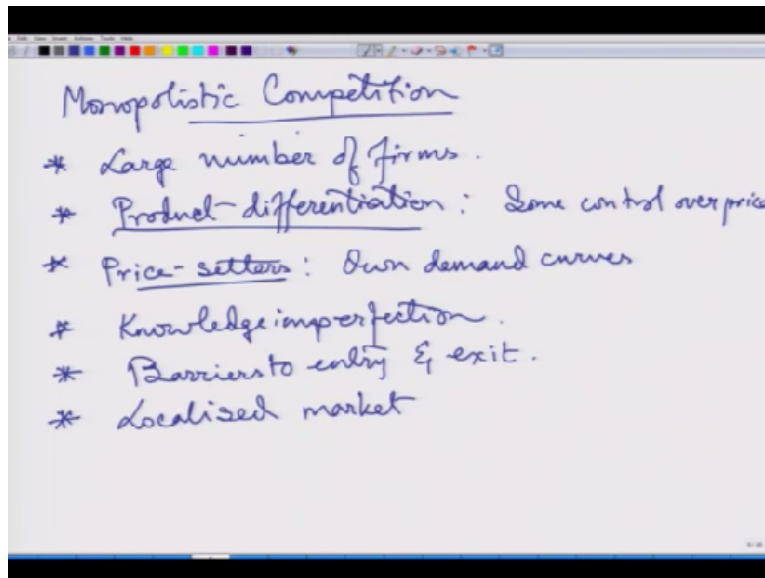 Monopolistic Competition
* Large number of firms.
* Product-differentiation : Some control over price
* Price-setters : Own demand curves
* Knowledge imperfection.
* Barriers to entry & exit.
* Localised market